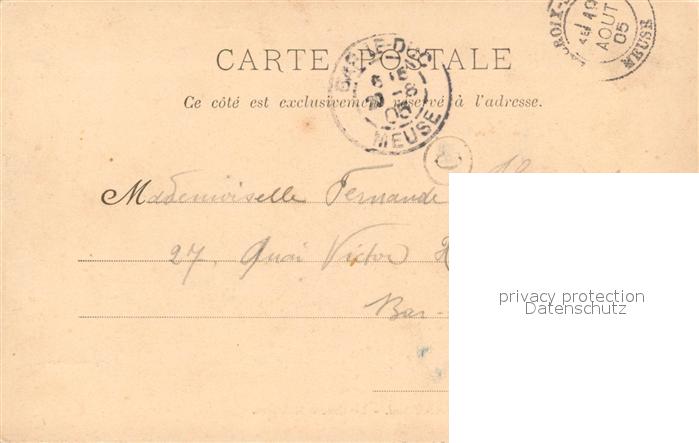 CROIX-S
1 19
AOUT
05
MEUSE
CARTE POSTALE
BAR-LE-DUC
05
MEUSE
Ce côté est exclusivement réservé à l'adresse.
Mademoiselle Fernande
27, Quai Victor H
Bar-
privacy protection
Datenschutz